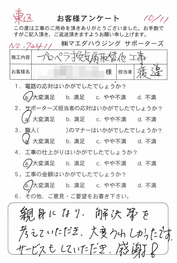 東区
10/11
お客様アンケート
この度は工事のご用命を頂きありがとうございました。お手数ですが
ご記入頂き、ご返送頂きますようお願い申し上げます。
㈱マエダハウジング サポーターズ
施工内容
工事
お客様名
様
担当者
渡邉
1. 電話の応対はいかがでしたでしょうか?
a.大変満足 b.満足 c.やや不満 d.不満
2. サポーターズ担当者の応対はいかがでしたでしょうか?
a.大変満足 b.満足 c.やや不満 d.不満
3. 職人( )のマナーはいかがでしたでしょうか?
a.大変満足 b.満足 c.やや不満 d.不満
4. 工事の仕上がりはいかがでしたでしょうか?
a.大変満足 b.満足 c.やや不満 d.不満
5. 工事の金額はいかがでしたでしょうか?
a.大変満足 b.満足 c.やや不満 d.不満
6. その他、ご意見・ご要望をお書き下さい。
親身になり、解決策を
考えていただき、大変うれしかったです。
サービスもしていただき、感謝!